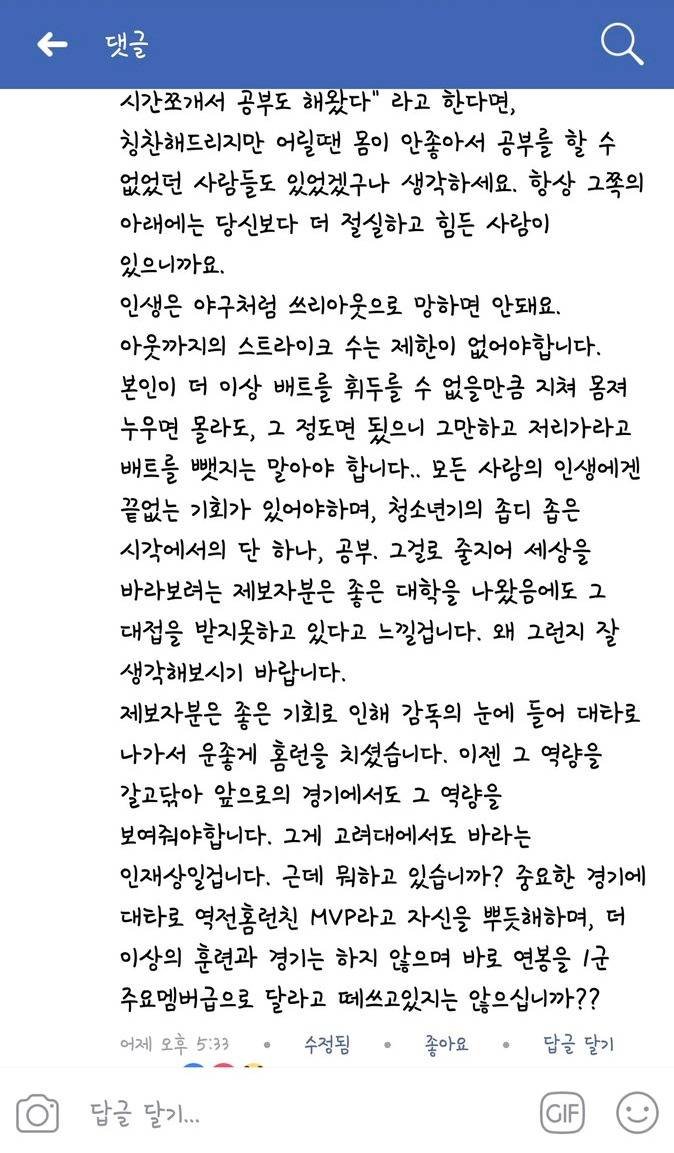 댓글
시간쪼개서 공부도 해왔다" 라고 한다면,
칭찬해드리지만 어릴땐 몸이 안좋아서 공부를 할 수
없었던 사람들도 있었겠구나 생각하세요. 항상 그쪽의
아래에는 당신보다 더 절실하고 힘든 사람이
있으니까요.
인생은 야구처럼 쓰리아웃으로 망하면 안돼요.
아웃까지의 스트라이크 수는 제한이 없어야합니다.
본인이 더 이상 배트를 휘두를 수 없을만큼 지쳐 몸져
누우면 몰라도, 그 정도면 됬으니 그만하고 저리가라고
배트를 뺏지는 말아야 합니다.. 모든 사람의 인생에겐
끝없는 기회가 있어야하며, 청소년기의 좁디 좁은
시각에서의 단 하나, 공부. 그걸로 줄지어 세상을
바라보려는 제보자분은 좋은 대학을 나왔음에도 그
대접을 받지못하고 있다고 느낄겁니다. 왜 그런지 잘
생각해보시기 바랍니다.
제보자분은 좋은 기회로 인해 감독의 눈에 들어 대타로
나가서 운좋게 홈런을 치셨습니다. 이젠 그 역량을
갈고닦아 앞으로의 경기에서도 그 역량을
보여줘야합니다. 그게 고려대에서도 바라는
인재상일겁니다. 근데 뭐하고 있습니까? 중요한 경기에
대타로 역전홈런친 MVP라고 자신을 뿌듯해하며, 더
이상의 훈련과 경기는 하지 않으며 바로 연봉을 1군
주요멤버급으로 달라고 떼쓰고있지는 않으십니까??
어제 오후 5:33 • 수정됨 • 좋아요 • 답글 달기
답글 달기... GIF